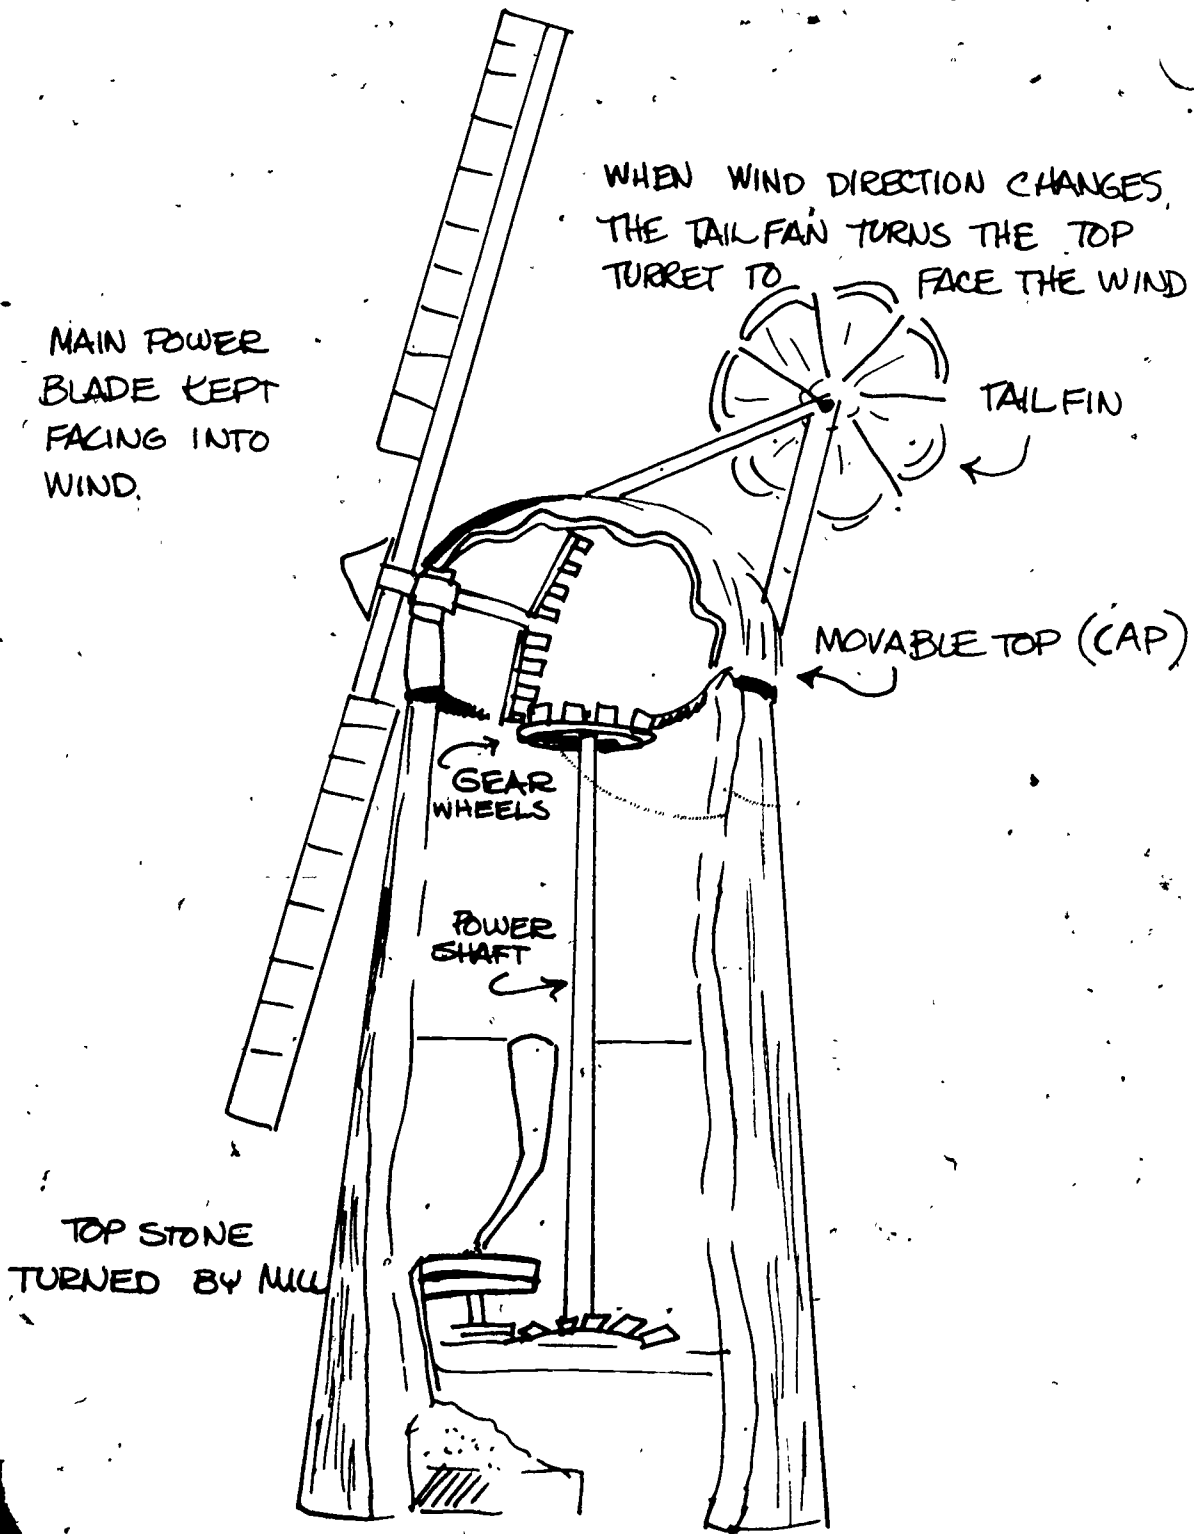 WHEN WIND DIRECTION CHANGES,
THE TAIL FAN TURNS THE TOP
TURRET TO FACE THE WIND
MAIN POWER
BLADE KEPT
FACING INTO
WIND.
TAIL FIN
MOVABLE TOP (CAP)
GEAR
WHEELS
POWER
SHAFT
TOP STONE
TURNED BY MILL